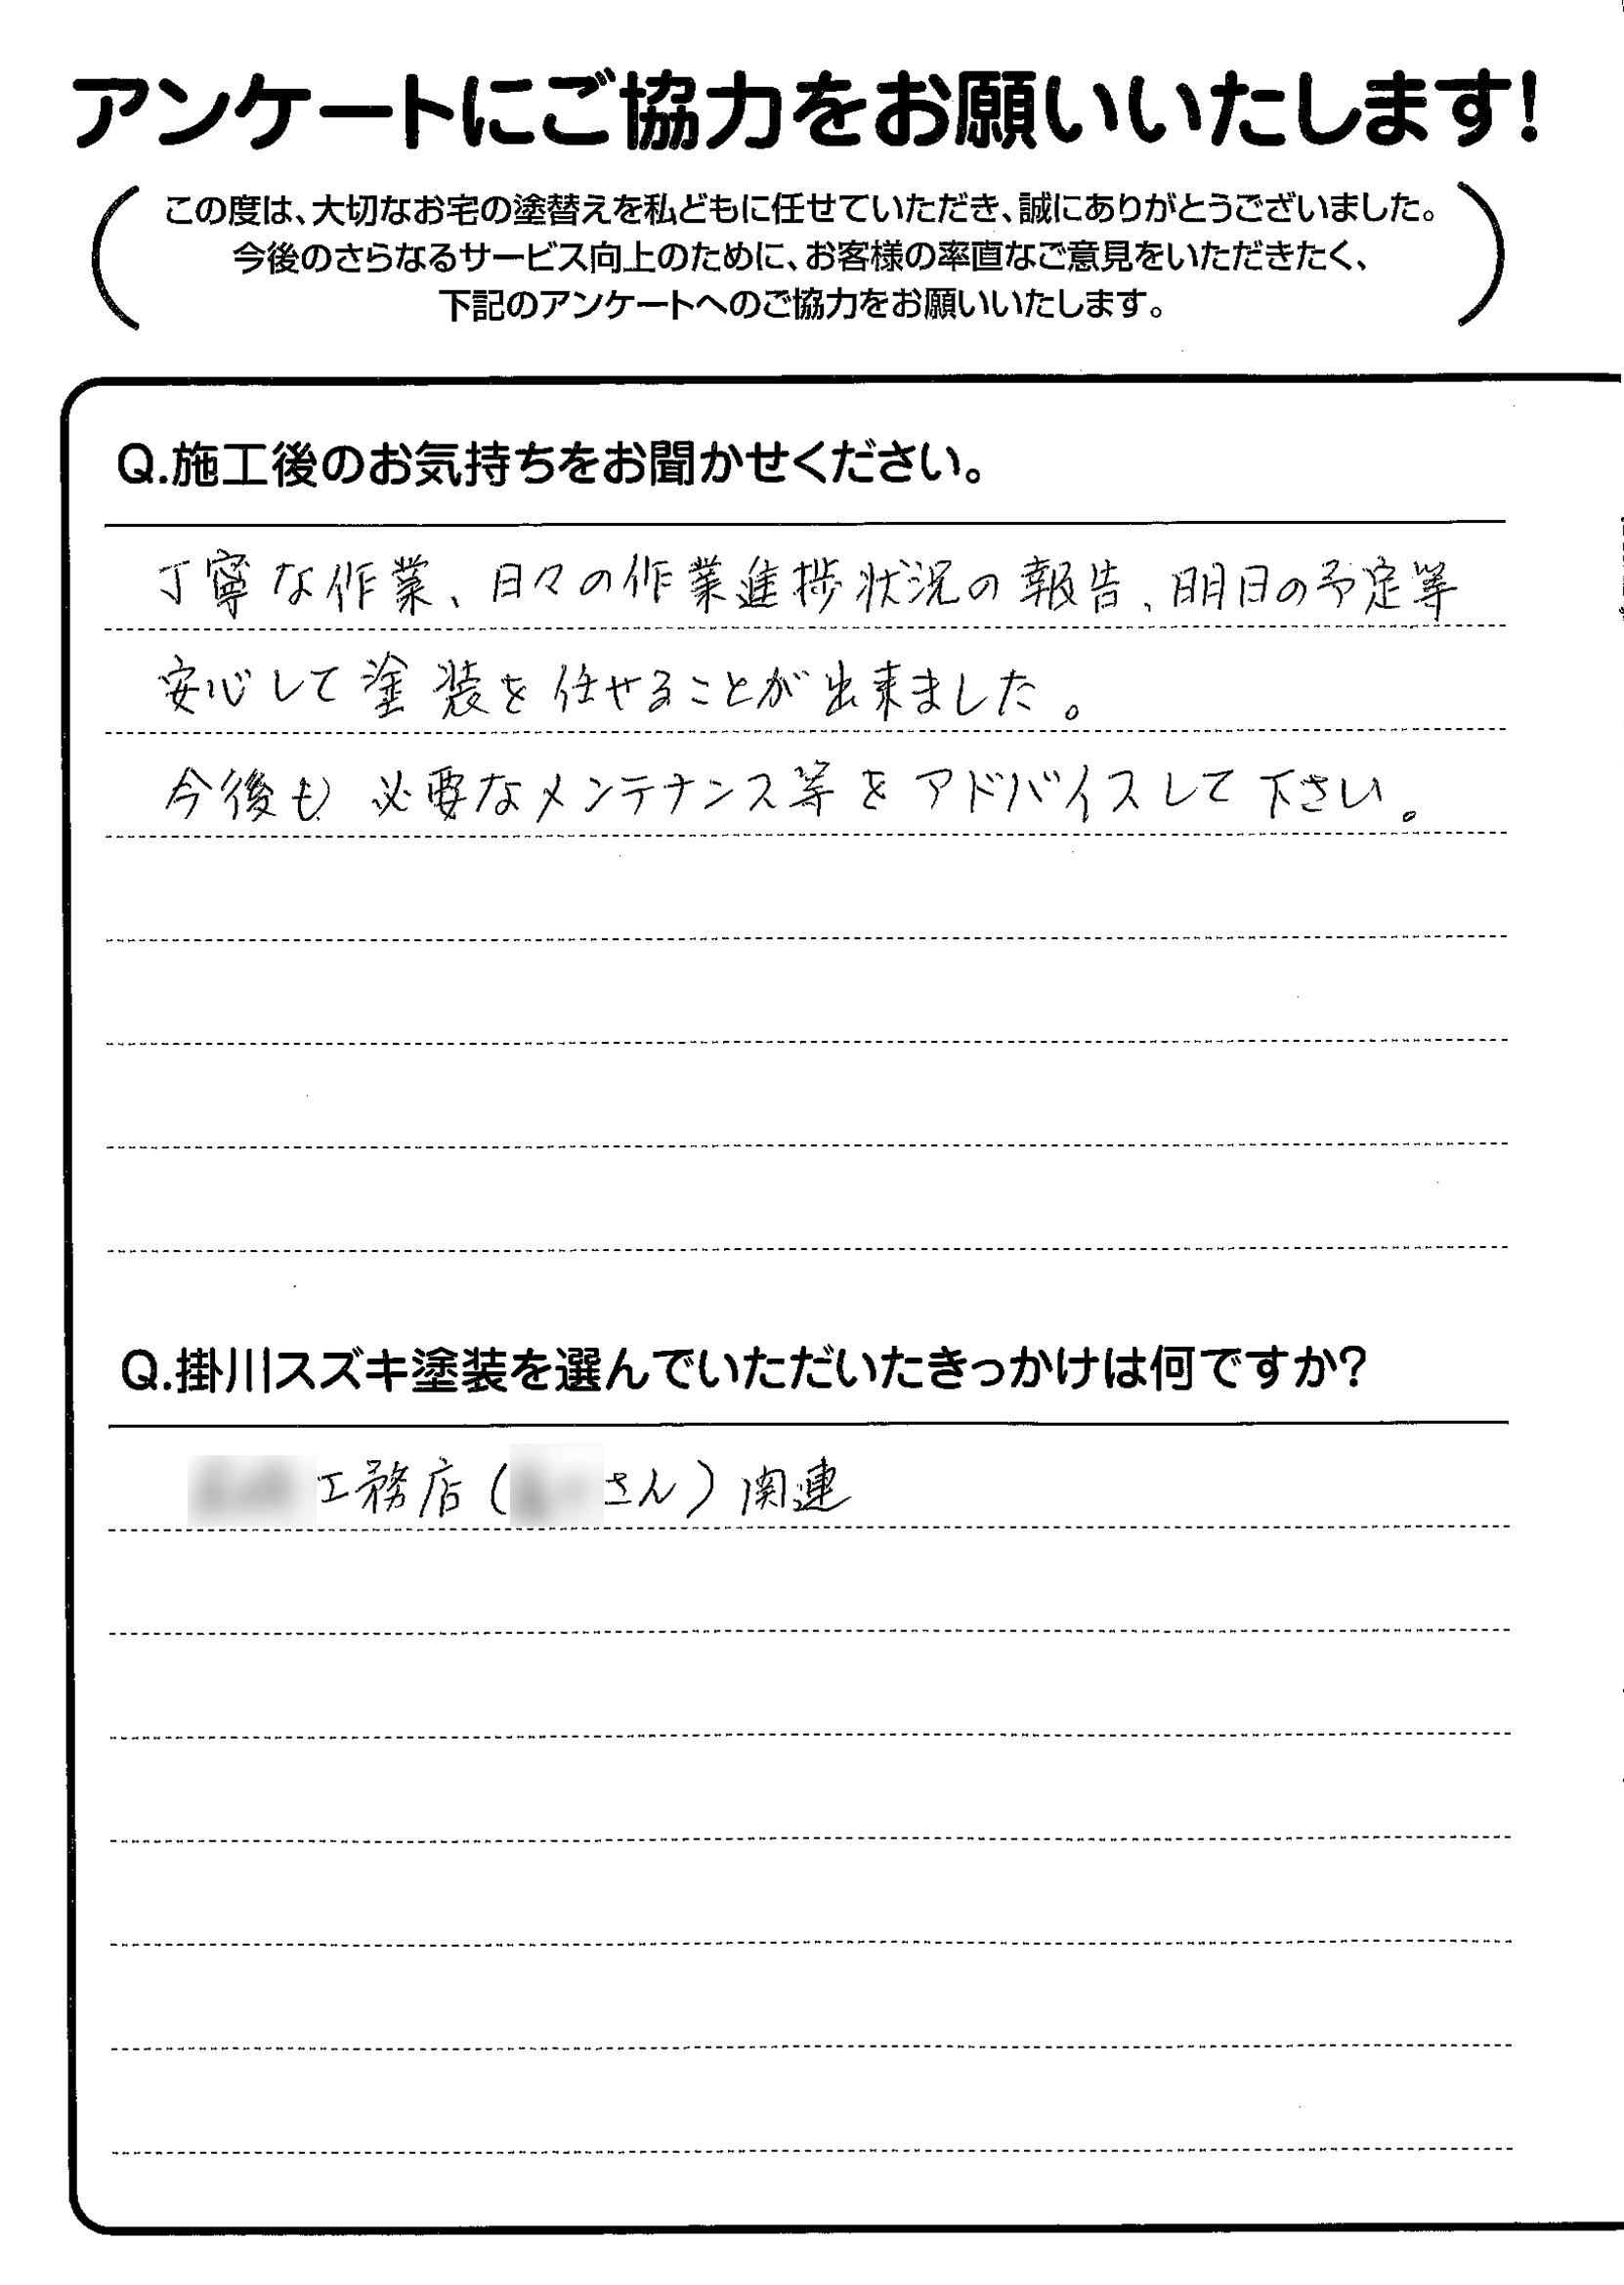 アンケートにご協力をお願いいたします!
この度は、大切なお宅の塗替えを私どもに任せていただき、誠にありがとうございました。
今後のさらなるサービス向上のために、お客様の率直なご意見をいただきたく、
下記のアンケートへのご協力をお願いいたします。
Q.施工後のお気持ちをお聞かせください。
丁寧な作業、日々の作業進捗状況の報告、明日の予定等
安心して塗装を任せることが出来ました。
今後も必要なメンテナンス等をアドバイスして下さい。
Q.掛川スズキ塗装を選んでいただいたきっかけは何ですか?
工務店(さん)関連